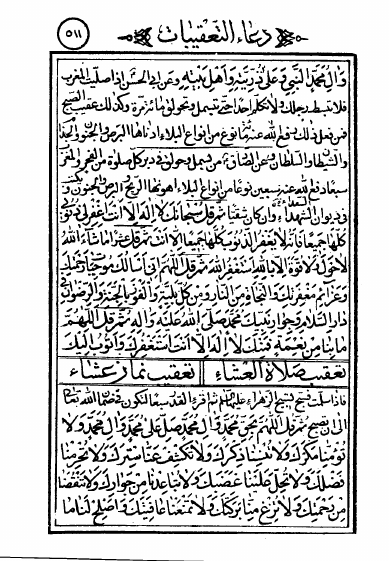 ٥١١
دعاء التعقيبات
وال محمد النبي وعلى ذريته وأهل بيته وعن أبي الحسن اذا صليت المغرب
فلا تبسط رجلك ولا تكلم احدا حتى تقول مائة مرة وكذلك عقيب الصبح
فمن فعل ذلك دفع الله عنه مائة نوع من انواع البلاء ادناها البرص والجذام
والشيطان والسلطان وعن الصادق من قال في دبر كل صلوة من الفجر والمغرب
سبعا دفع الله عنه سبعين نوعا من انواع البلاء اهونها الريح والبرص والجنون
في ديوان الشهداء وان كان شقيا ثم قل سبحانك لا إله إلا أنت اغفر لي ذنوبي
كلها جميعا فانه لا يغفر الذنوب كلها جميعا إلا أنت ثم قل عشرا ما شاء الله
لا حول ولا قوة إلا بالله استغفر الله ثم قل اللهم إني أسألك موجبات رحمتك
وعزائم مغفرتك والنجاة من النار ومن كل بلية والفوز بالجنة والرضوان في
دار السلام وجوار نبيك محمد صلى الله عليه واله ثم قل اللهم
ما بنا من نعمة فمنك لا إله إلا أنت استغفرك وأتوب إليك
تعقيب صلاة العشاء تعقيب نماز عشاء
فاذا سلمت فسبح تسبيح الزهراء عليها السلام ثم اقرء القدر سبعا لتكون في ضمان الله تعالى
الى ان تصبح ثم قل اللهم بحق محمد وال محمد صل على محمد وال محمد ولا
تؤمنا مكرك ولا تنسنا ذكرك ولا تكشف عنا سترك ولا تحرمنا
فضلك ولا تحل علينا غضبك ولا تباعدنا من جوارك ولا تنقصنا
من رحمتك ولا تنزع منا بركتك ولا تمنعنا عافيتك واصلح لنا ما